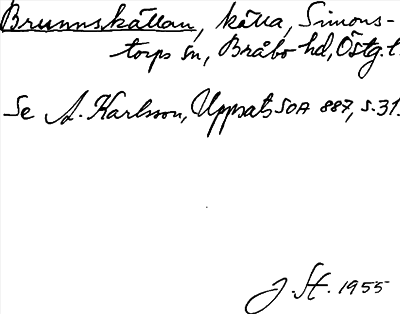 Brunnskällan, källa, Simons-
torps sn, Bråbo hd, Östg.l.
Se A. Karlsson, Uppsats SOA 887, s.31.
J. St. 1955